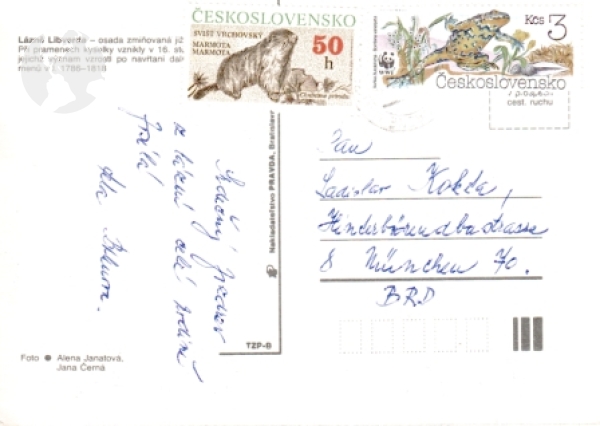 Lázně Libverda – osada zmiňovaná již
Při pramenech kyselky vznikly v 16. st.
jejichž význam vzrostl po navrtání dal
menů v l. 1786–1818
ČESKOSLOVENSKO
SVIŠŤ VRCHOVSKÝ
MARMOTA
MARMOTA
50
h
Chráněná příroda
Kčs 3
WWF
Československo
cest. ruchu
Srdečný pozdrav
ze lázní celé rodině
přeje
Nakladatelství PRAVDA, Bratislava
TZP-B
Pan
Ladislav Kokda,
8 München 70.
BRD
Foto ● Alena Janatová,
Jana Černá